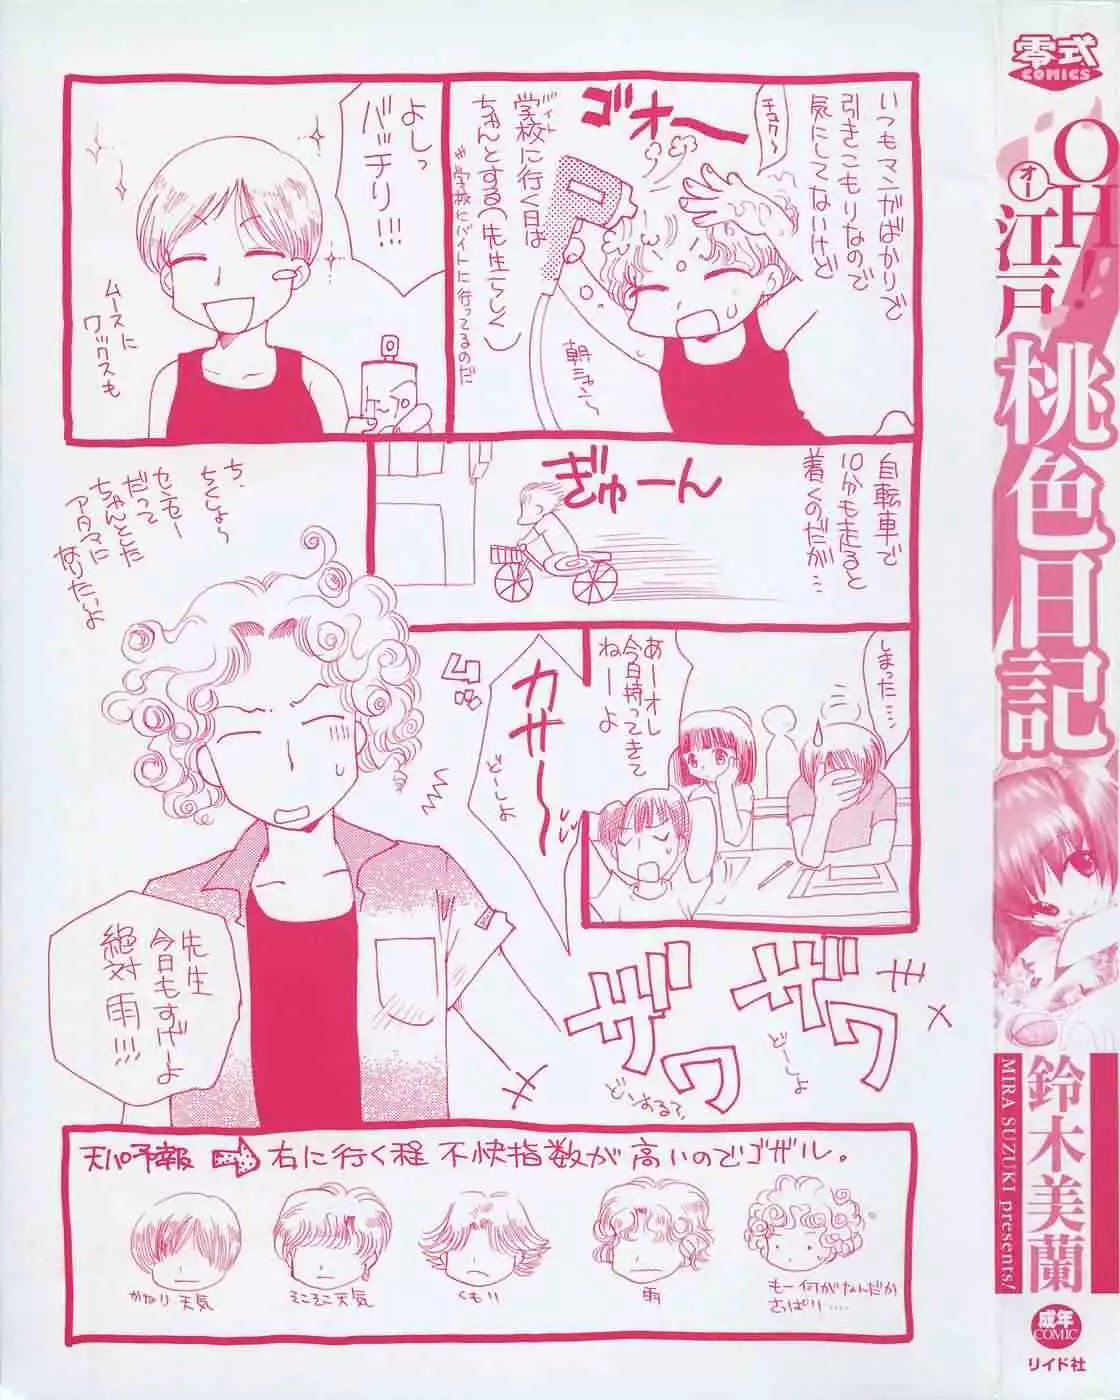 いつもマンガばかりで
引きこもりなので
気にしてないけど
チュク〜
ゴオー
バイト
学校に行く日は
ちゃんとする(先生らしく)
※学校にバイトに行ってるのだ
朝シャン〜
よしっ
バッチリ!!!
ケープ
ムースに
ワックスも
自転車で
10分も走ると
着くのだが…
ぎゅーん
しまった…
あーオレ
今日持ってきて
ねーよ
カサ〜
どーしよ
ち、
ちくしょ〜
センセー
だって
ちゃんとした
アタマに
なりたいよ
先生
今日もすげーよ
絶対 雨!!!
ザワ
ザワ
どーしよ
どいするで
天パ予報 → 右に行く程 不快指数が 高いのでゴザル。
かなり 天気
そこそこ 天気
くもり
雨
もー何がなんだか
さっぱり……
零式
COMICS
OH!
オー
江戸桃色日記
鈴木美蘭
MIRA SUZUKI presents!
成年
COMIC
リイド社